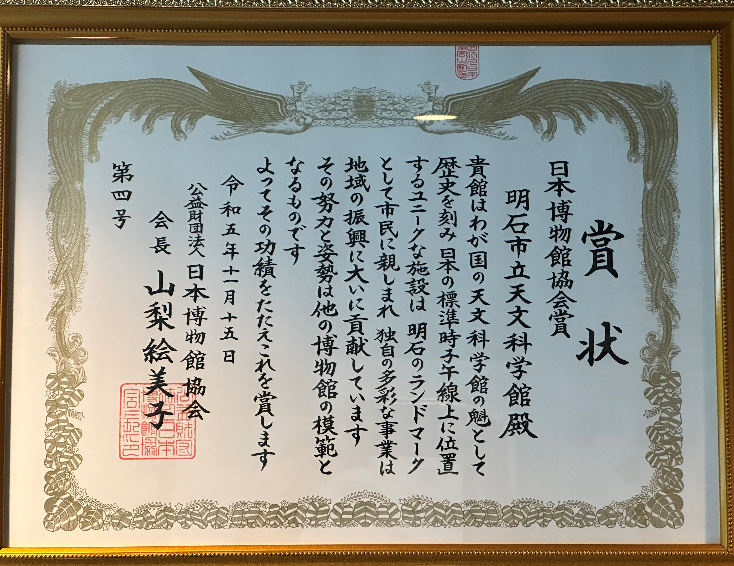 賞状
日本博物館協会賞
明石市立天文科学館殿
貴館はわが国の天文科学館の魁として
歴史を刻み日本の標準時子午線上に位置
するユニークな施設は 明石のランドマーク
として市民に親しまれ 独自の多彩な事業は
地域の振興に大いに貢献しています
その努力と姿勢は他の博物館の模範と
なるものです
よってその功績をたたえこれを賞します
令和五年十一月十五日
公益財団法人日本博物館協会
会長 山梨絵美子
第四号